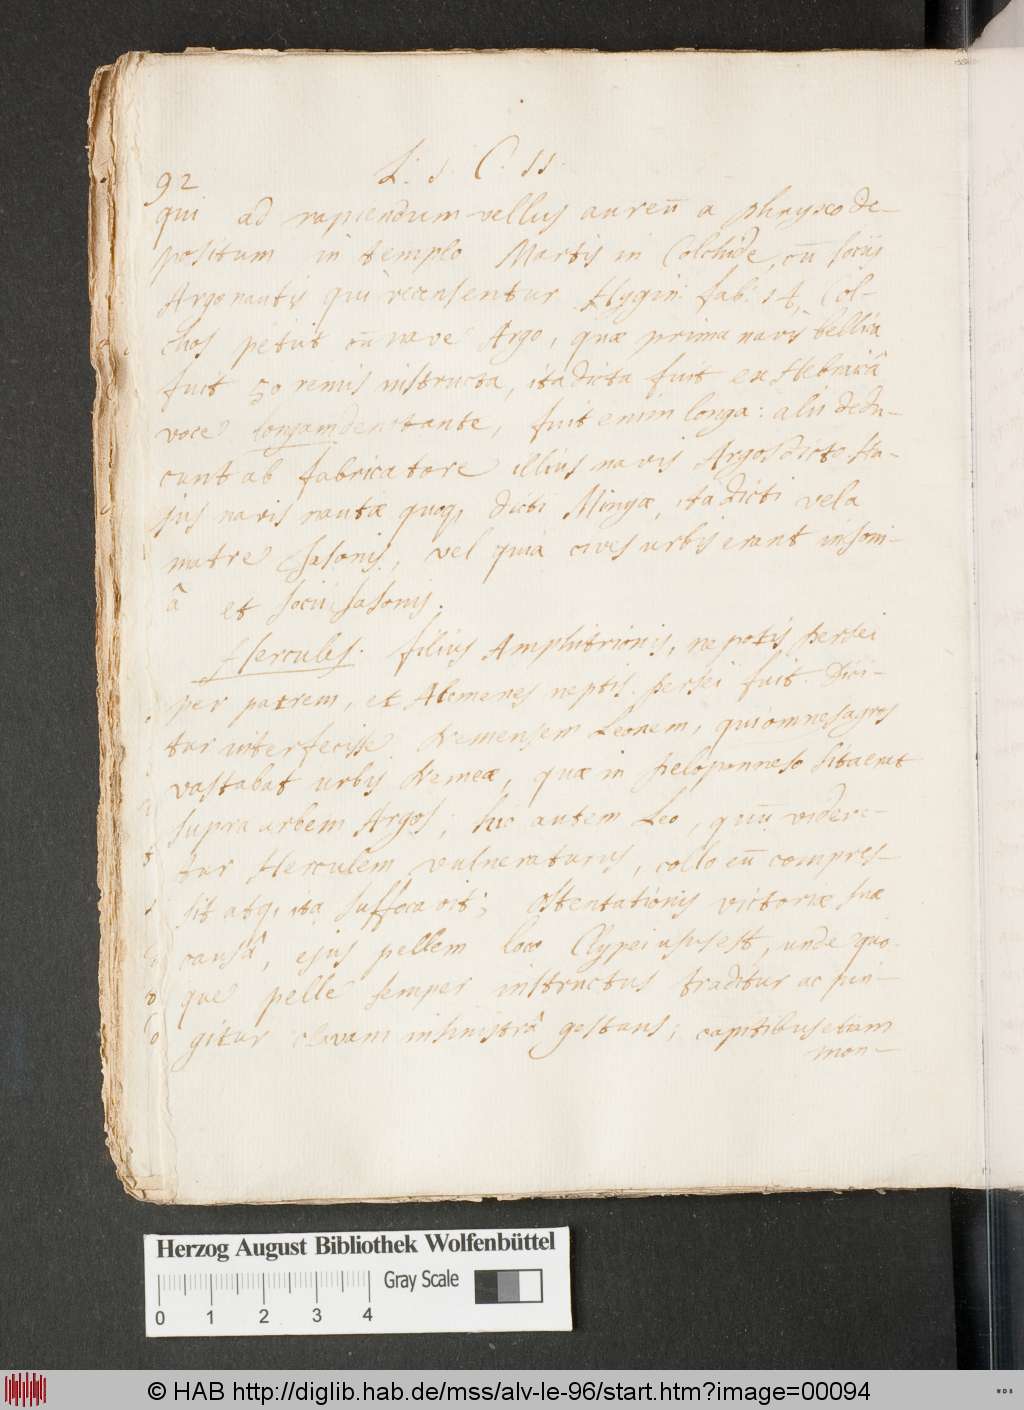 92
L. 1. C. 11.
qui ad rapiendum vellus aureū a phryxo de-
positum in templo Martis in Colchide, cū sociis
Argonautis qui recensentur Hygin. fab. 14, Col-
chos petiit cū nave Argo, quæ prima navis bellica
fuit 50 remis instructa, ita dicta fuit ex Hebraicâ
voce longam denotante, fuit enim longa: alii dedu-
cunt ab fabricatore illius navis Argos dicto. Hu-
jus navis nautæ quoq, dicti Minyæ, ita dicti vel a
matre Jasonis, vel quia cives urbis erant
â et socii Jasonis.
Hercules. filius Amphitrionis, nepotis Persei
per patrem, et Alcmenes neptis Persei fuit. Dici-
tur interfecisse Nemensem Leonem, qui omnes agros
vastabat urbis Nemeæ, quæ in Peloponneso sita erat
supra urbem Argos; hic autem Leo, quū videre-
tur Herculem vulneraturus, collo eū compres-
sit atq, ita suffocavit; Ostentationis victoriæ suæ
causâ, ejus pellem loco Clypei usus est, unde quo-
que pelle semper instructus traditur ac pin-
gitur clavam in sinistrâ gestans; capitibus etiam
mon-
Herzog August Bibliothek Wolfenbüttel
0 1 2 3 4 Gray Scale
© HAB http://diglib.hab.de/mss/alv-le-96/start.htm?image=00094